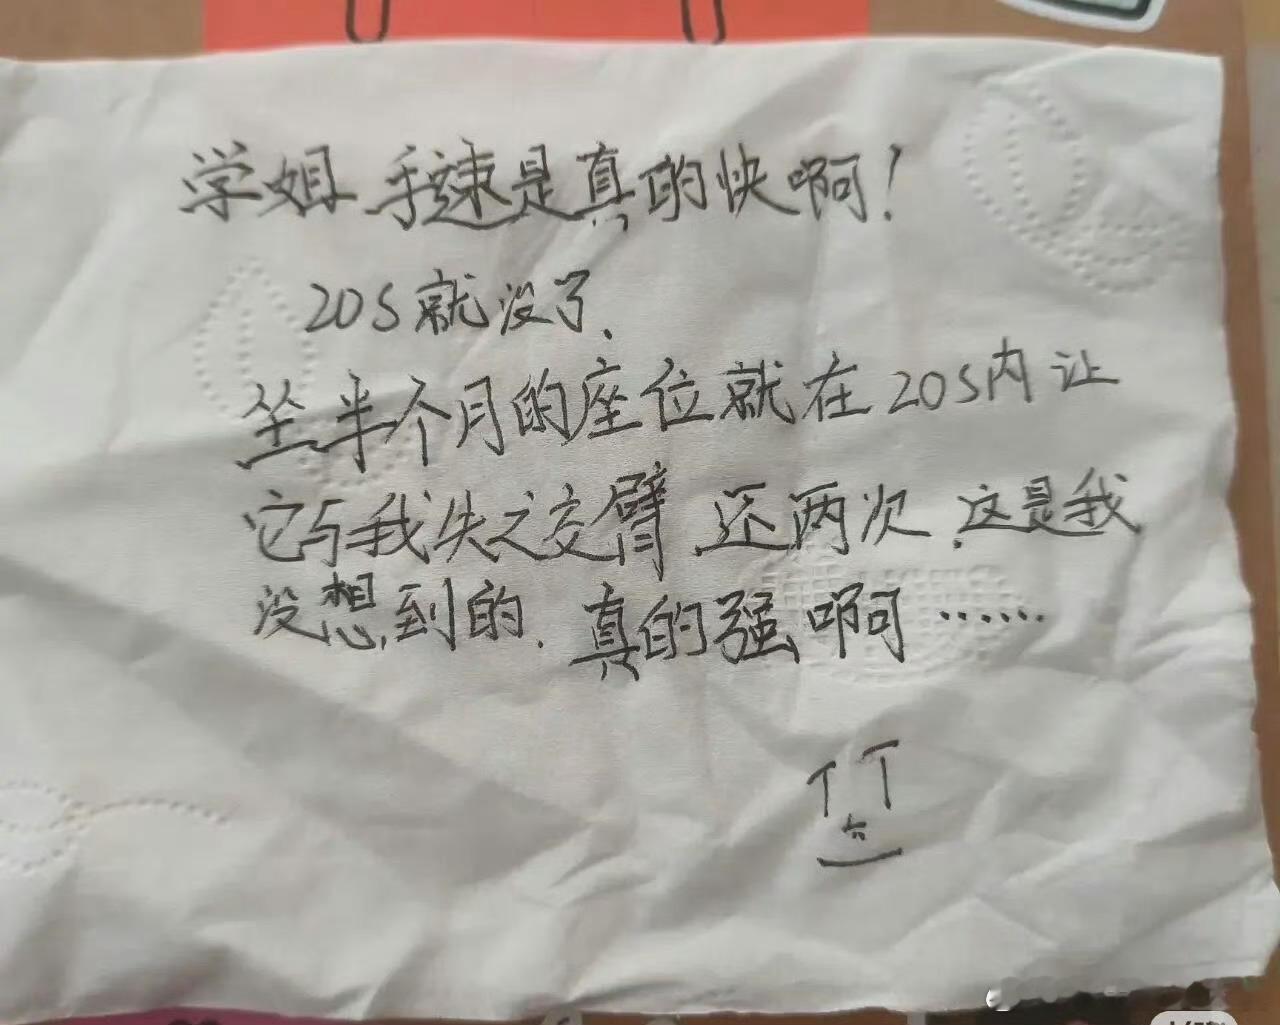 学姐 手速是真的快啊！
20S就没了.
坐半个月的座位就在20S内让
它与我失之交臂 还两次.这是我
没想到的. 真的强啊……